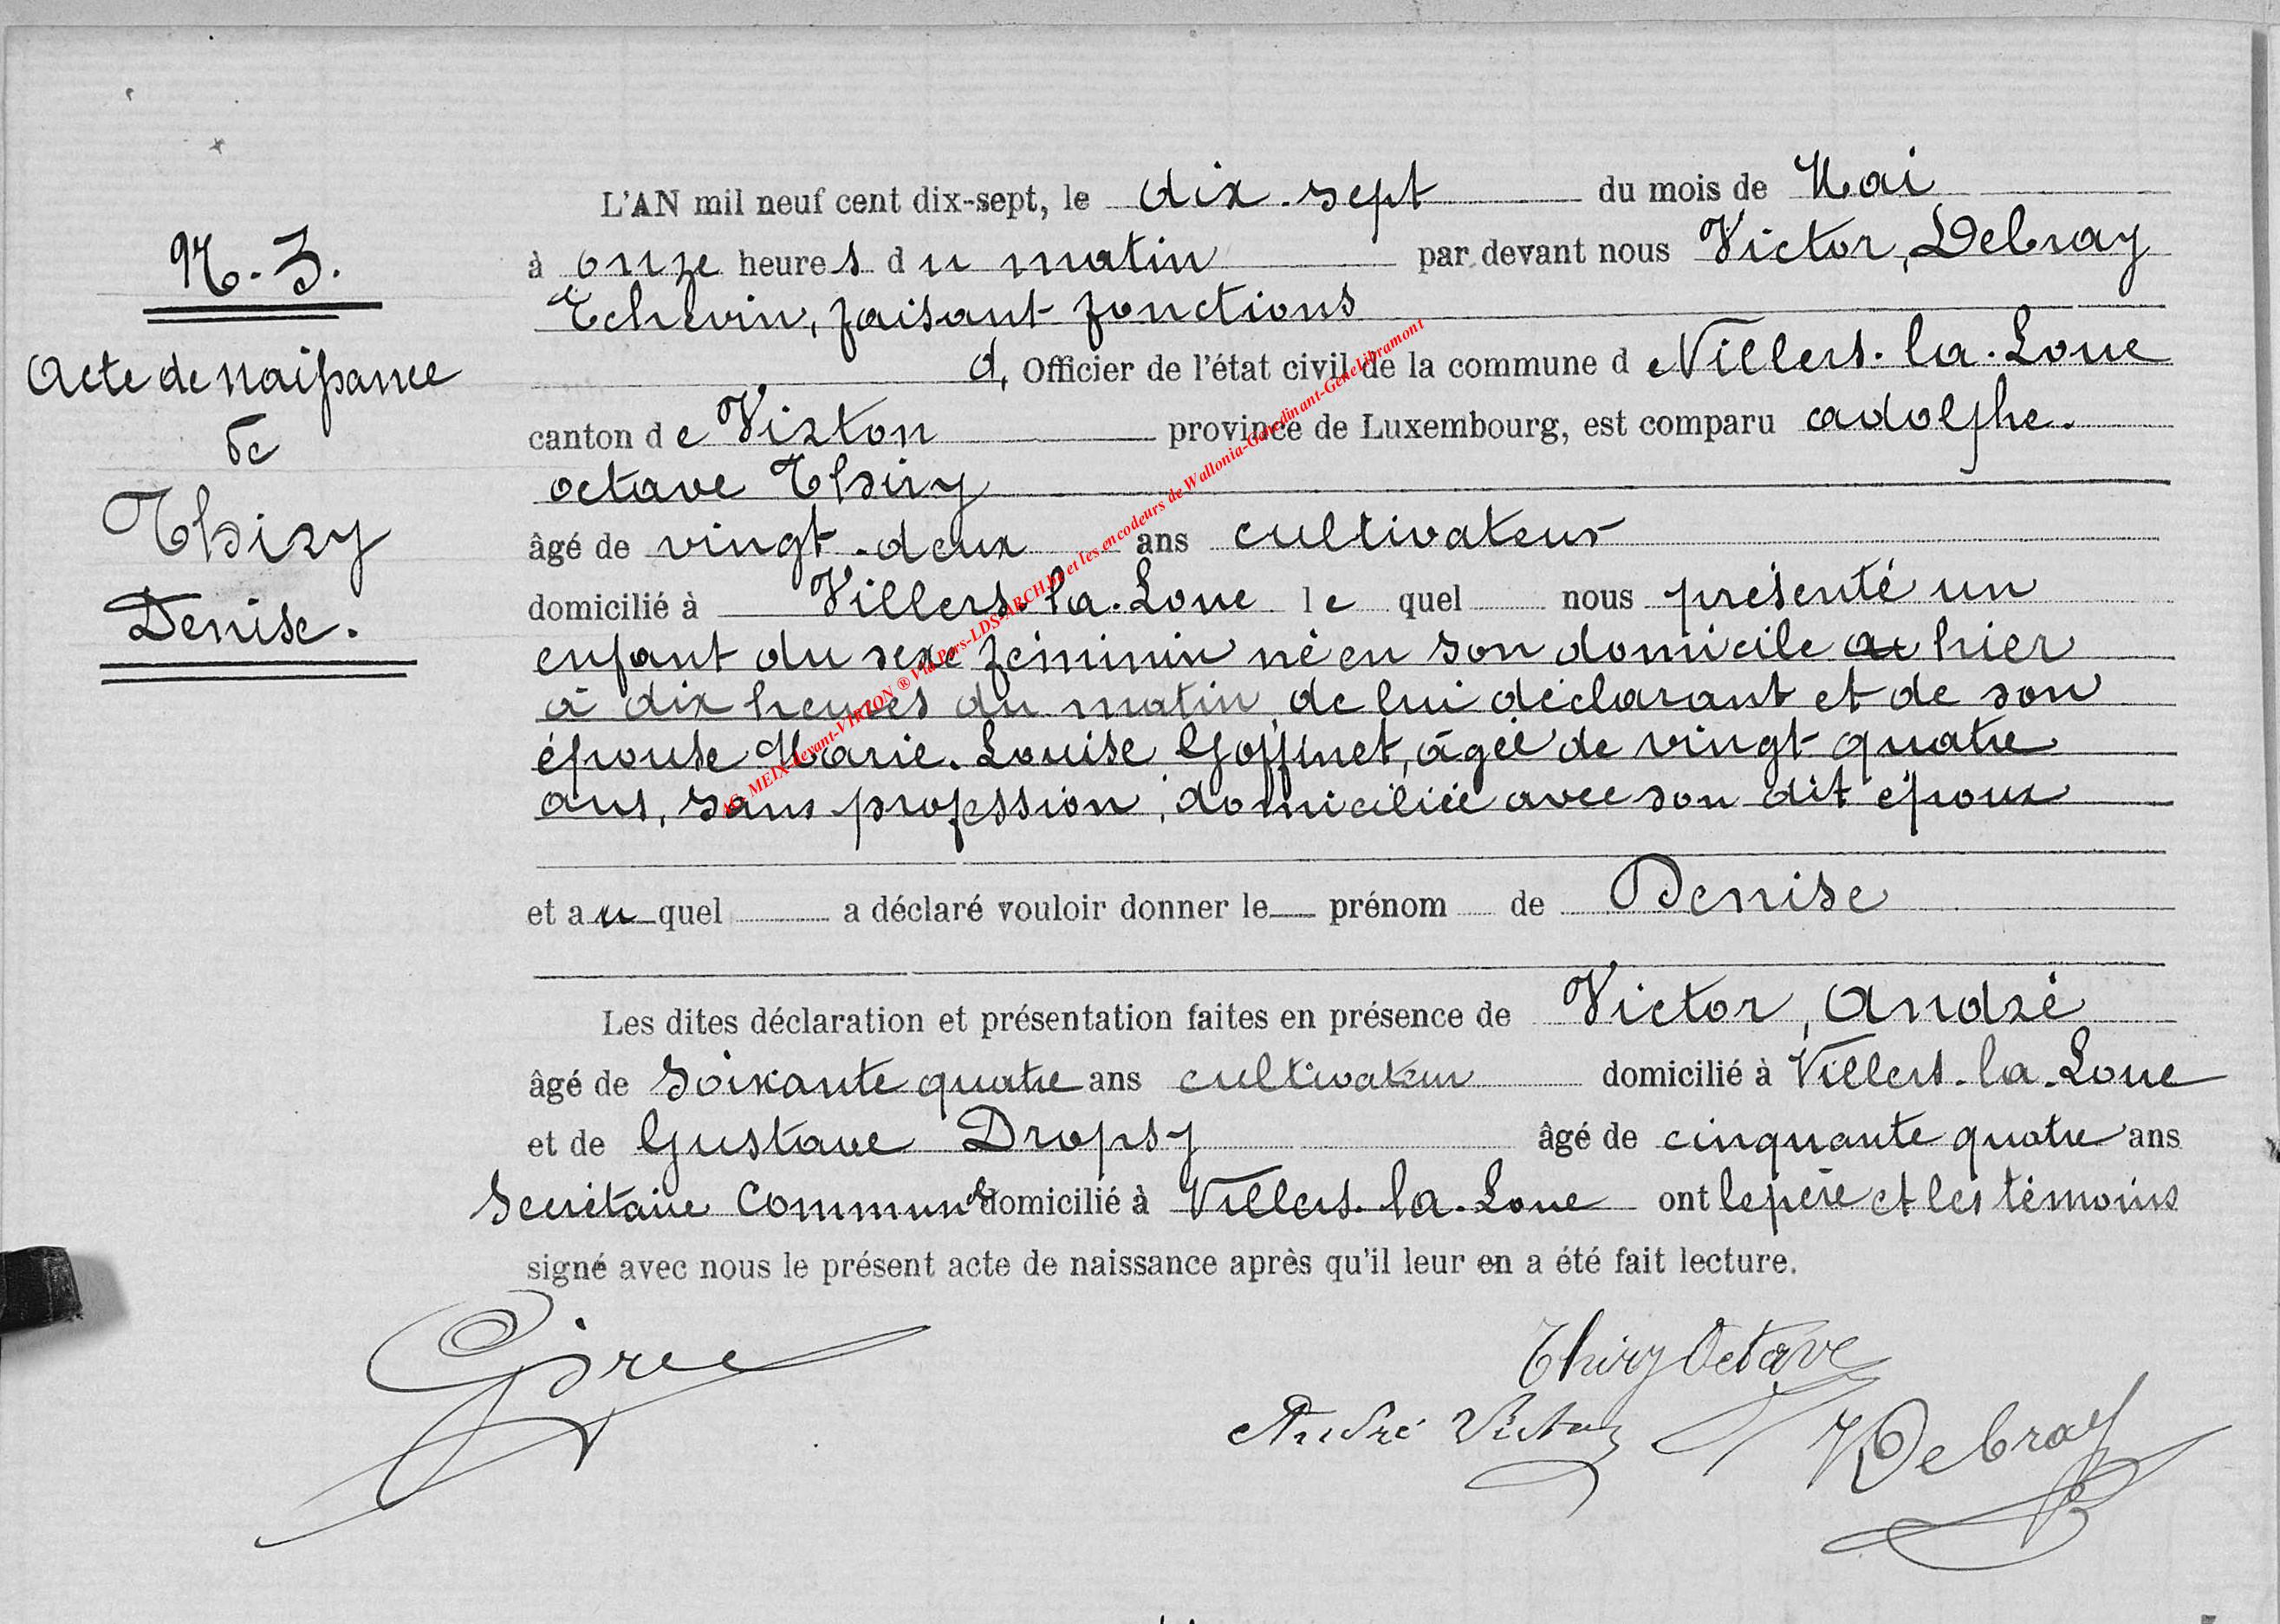 N. 3.
Acte de naissance
de
Thiry
Denise.
L'AN mil neuf cent dix-sept, le dix-sept du mois de Mai
à onze heures du matin par devant nous Victor, Debray
Echevin, faisant fonctions
d, Officier de l'état civil de la commune de Villers-la-Loue
canton de Virton province de Luxembourg, est comparu adolphe.
octave Thiry
âgé de vingt-deux ans cultivateur
domicilié à Villers-la-Loue lequel nous présenté un
enfant du sexe féminin né en son domicile hier
à dix heures du matin, de lui déclarant et de son
épouse Marie-Louise Goffinet, âgée de vingt-quatre
ans, sans profession, domiciliée avec son dit époux
et auquel a déclaré vouloir donner le prénom de Denise
Les dites déclaration et présentation faites en présence de Victor, André
âgé de soixante quatre ans cultivateur domicilié à Villers-la-Loue
et de Gustave Dropsy âgé de cinquante quatre ans
Secrétaire Communal domicilié à Villers-la-Loue ont le père et les témoins
signé avec nous le présent acte de naissance après qu'il leur en a été fait lecture.
Thiry Octave
André Victor
VDebray
AG- MEIX-devant-VIRTON ® Via Pers-LDS-ARCH.be et les encodeurs de Wallonia-Genedinant-GeneLibramont